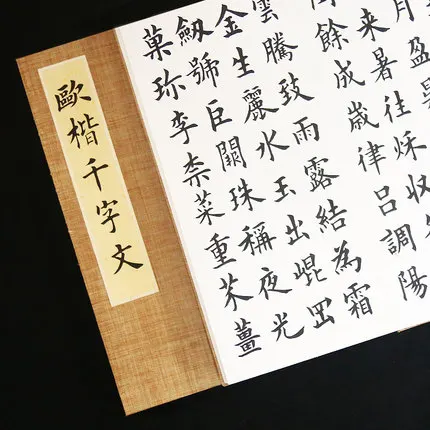 歐楷千字文
月盈
來暑往秋收
餘成歲律呂調陽
雲騰致雨露結為霜
金生麗水玉出崐岡
劔號巨闕珠稱夜光
菓珍李柰菜重芥薑